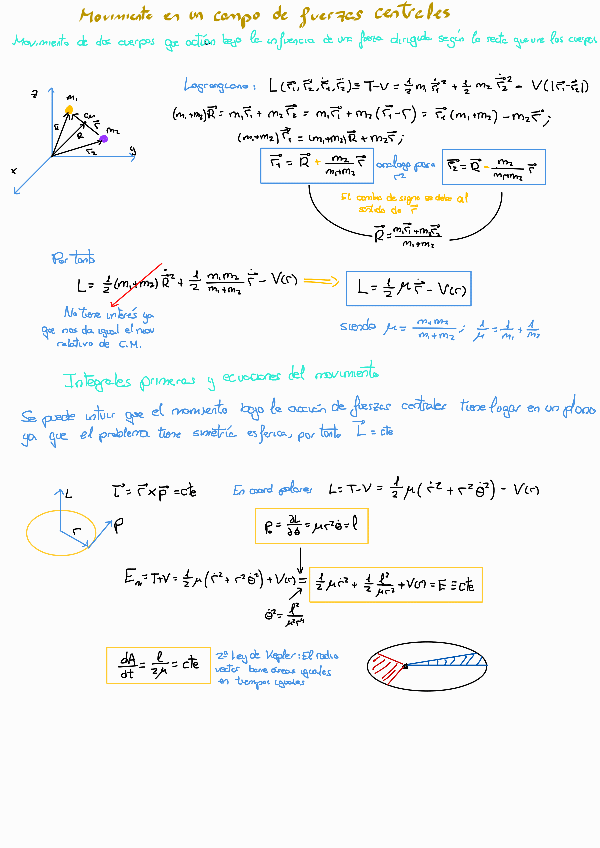 Movimiento en un campo de fuerzas centrales
Movimiento de dos cuerpos que actúan bajo la influencia de una fuerza dirigida según la recta que une los cuerpos
z
m₁
CM
m₂
R
r
r₂
y
x
Lagrangiana: L(r⃗₁, r⃗₂, ṙ⃗₁, ṙ⃗₂) = T-V = 1/2 m₁ ṙ⃗₁² + 1/2 m₂ ṙ⃗₂² - V(|r⃗₁-r⃗₂|)
(m₁+m₂)R⃗ = m₁r⃗₁ + m₂r⃗₂ = m₁r⃗₁ + m₂(r⃗₁-r⃗) = r⃗₁(m₁+m₂) - m₂r⃗;
(m₁+m₂)r⃗₁ = (m₁+m₂)R⃗ + m₂r⃗;
r⃗₁ = R⃗ + m₂/(m₁+m₂) r⃗
análogo para r⃗₂
r⃗₂ = R⃗ - m₂/(m₁+m₂) r⃗
El cambio de signo se debe al
sentido de r⃗
R⃗ = (m₁r⃗₁+m₂r⃗₂)/(m₁+m₂)
Por tanto
L = 1/2 (m₁+m₂) Ṙ⃗² + 1/2 m₁m₂/(m₁+m₂) ṙ⃗ - V(r) ⟹ L = 1/2 μ ṙ⃗ - V(r)
No tiene interés ya
que nos da igual el mov
relativo de C.M.
siendo μ = m₁m₂/(m₁+m₂); 1/μ = 1/m₁ + 1/m₂
Integrales primeras y ecuaciones del movimiento
Se puede intuir que el movimiento bajo la acción de fuerzas centrales tiene lugar en un plano
ya que el problema tiene simetría esférica, por tanto L⃗ = cte
L
r
P
L⃗ = r⃗ × p⃗ = cte
En coord polares L = T-V = 1/2 μ(ṙ² + r²θ̇²) - V(r)
Pθ = ∂L/∂θ̇ = μr²θ̇ = l
Em = T+V = 1/2 μ(ṙ² + r²θ̇²) + V(r) = 1/2 μṙ² + 1/2 l²/μr² + V(r) = E ≡ cte
θ̇² = l²/μ²r⁴
dA/dt = l/2μ = cte
2ª Ley de Kepler: El radio
vector barre áreas iguales
en tiempos iguales